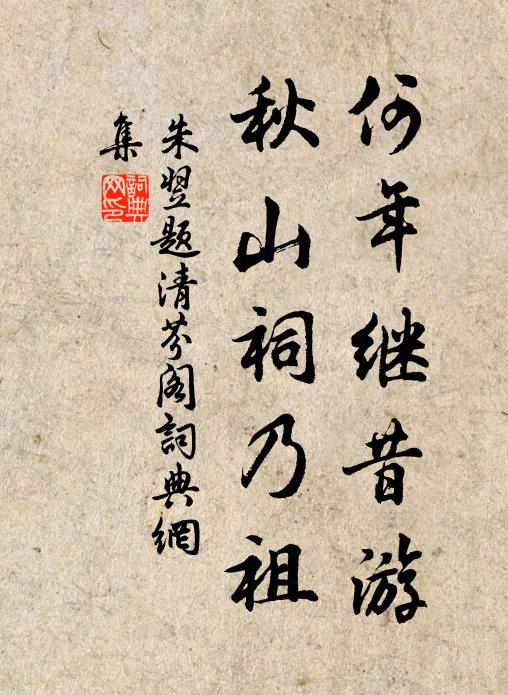 何年继昔游
秋山祠乃祖
朱翌题清芬阁詞典網
集
詞典
网印